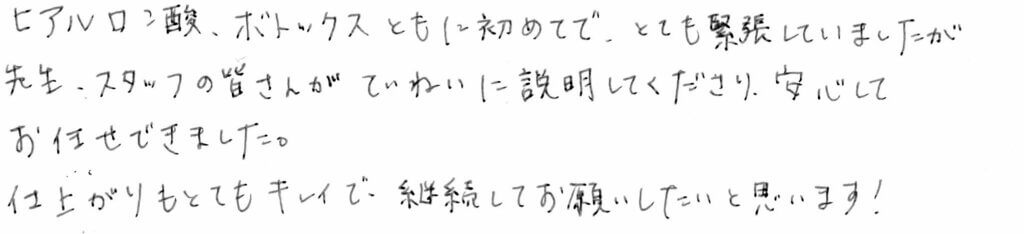 ヒアルロン酸、ボトックスともに初めてで、とても緊張していましたが
先生、スタッフの皆さんがていねいに説明してくださり、安心して
お任せできました。
仕上がりもとてもキレイで、継続してお願いしたいと思います!